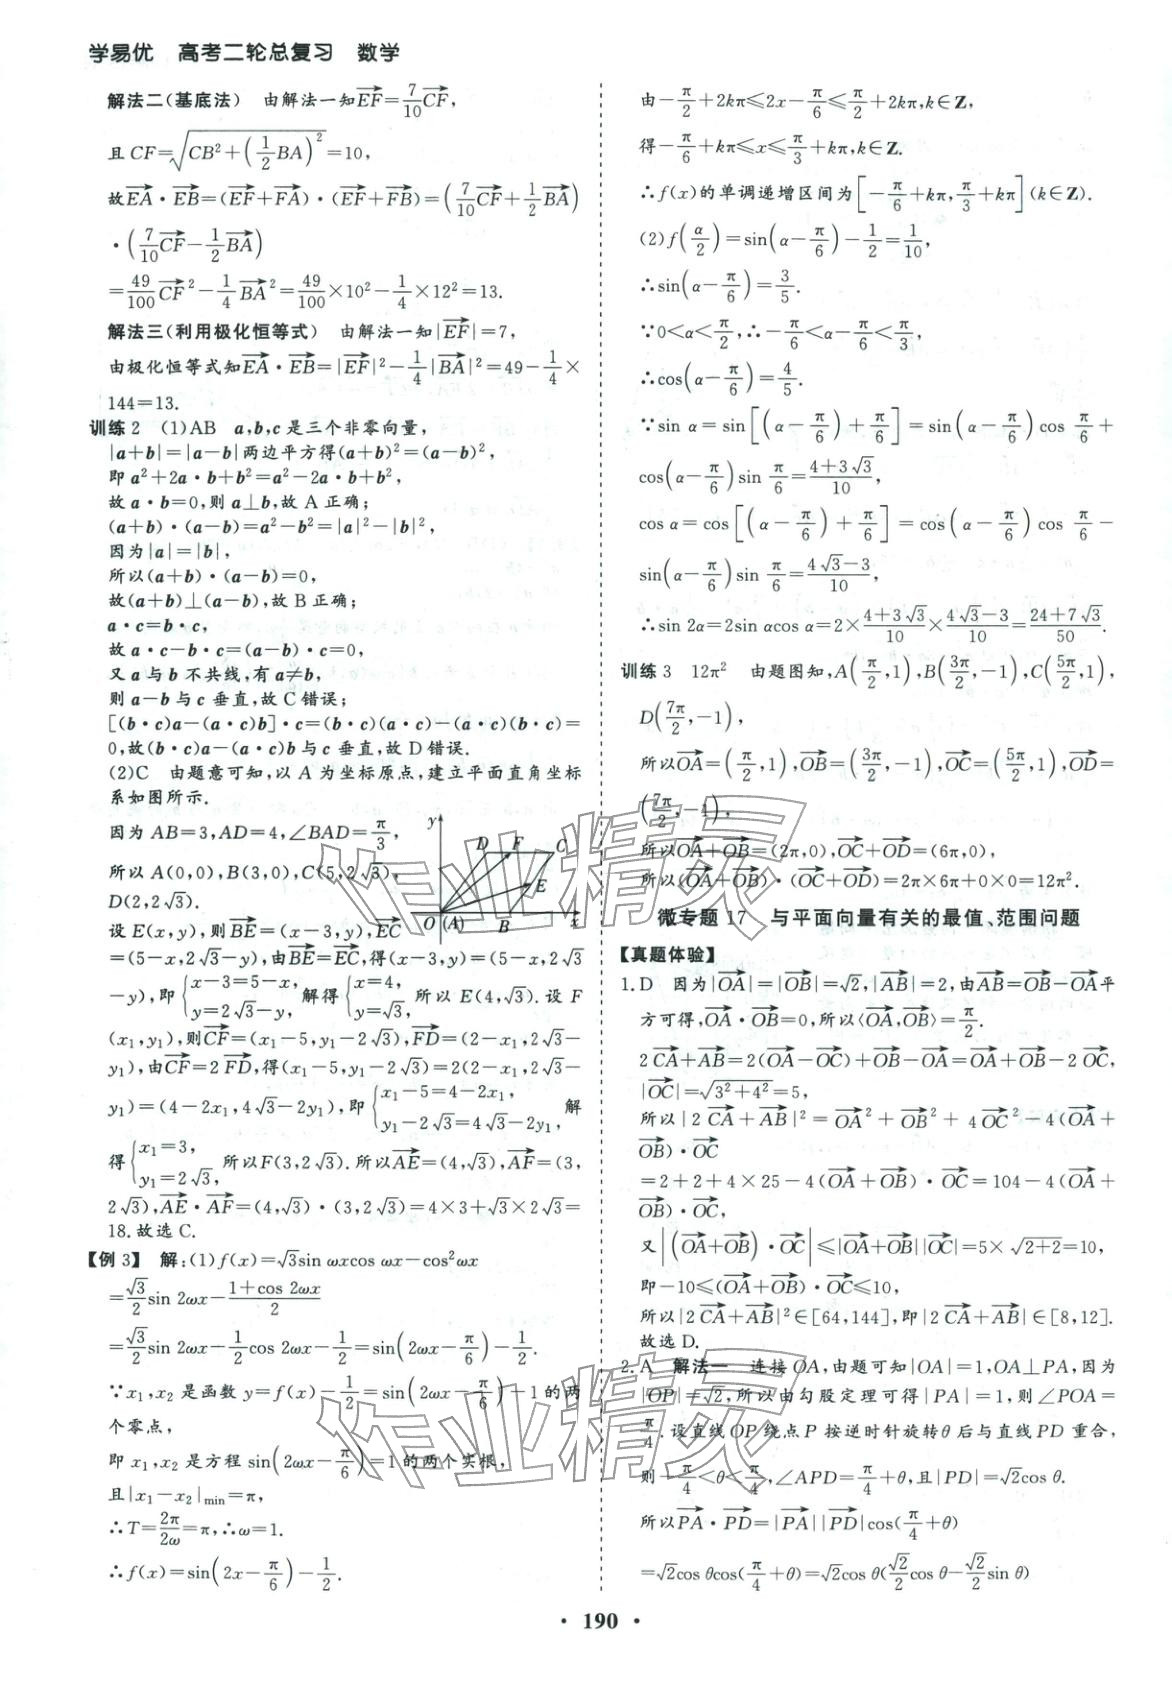 学易优 高考二轮总复习 数学
解法二(基底法) 由解法一知$\overrightarrow{EF}=\frac{7}{10}\overrightarrow{CF}$,
且 $CF=\sqrt{CB^2+\left(\frac{1}{2}BA\right)^2}=10$,
故$\overrightarrow{EA}\cdot\overrightarrow{EB}=(\overrightarrow{EF}+\overrightarrow{FA})\cdot(\overrightarrow{EF}+\overrightarrow{FB})=\left(\frac{7}{10}\overrightarrow{CF}+\frac{1}{2}\overrightarrow{BA}\right)$
$\cdot\left(\frac{7}{10}\overrightarrow{CF}-\frac{1}{2}\overrightarrow{BA}\right)$
$=\frac{49}{100}\overrightarrow{CF}^2-\frac{1}{4}\overrightarrow{BA}^2=\frac{49}{100}\times10^2-\frac{1}{4}\times12^2=13.$
解法三(利用极化恒等式) 由解法一知$|\overrightarrow{EF}|=7$,
由极化恒等式知$\overrightarrow{EA}\cdot\overrightarrow{EB}=|\overrightarrow{EF}|^2-\frac{1}{4}|\overrightarrow{BA}|^2=49-\frac{1}{4}\times$
144=13.
训练2 (1)AB a,b,c是三个非零向量,
|a+b|=|a-b|两边平方得(a+b)²=(a-b)²,
即 a²+2a·b+b²=a²-2a·b+b²,
故 a·b=0,则 a⊥b,故 A 正确;
(a+b)·(a-b)=a²-b²=|a|²-|b|²,
因为|a|=|b|,
所以(a+b)·(a-b)=0,
故(a+b)⊥(a-b),故 B 正确;
a·c=b·c,
故 a·c-b·c=(a-b)·c=0,
又 a 与 b 不共线,有 a≠b,
则 a-b 与 c 垂直,故 C 错误;
[(b·c)a-(a·c)b]·c=(b·c)(a·c)-(a·c)(b·c)=
0,故(b·c)a-(a·c)b 与 c 垂直,故 D 错误.
(2)C 由题意可知,以 A 为坐标原点,建立平面直角坐标
系如图所示.
因为 AB=3,AD=4,∠BAD=$\frac{π}{3}$,
所以 A(0,0),B(3,0),C(5,2√3),
D(2,2√3).
y D F C E O (A) B x
设 E(x,y),则$\overrightarrow{BE}$=(x-3,y),$\overrightarrow{EC}$
=(5-x,2√3-y),由$\overrightarrow{BE}=\overrightarrow{EC}$,得(x-3,y)=(5-x,2√3
-y),即$\begin{cases}x-3=5-x,\\y=2\sqrt3-y,\end{cases}$解得$\begin{cases}x=4,\\y=\sqrt3,\end{cases}$所以 E(4,√3).设 F
(x₁,y₁),则$\overrightarrow{CF}$=(x₁-5,y₁-2√3),$\overrightarrow{FD}$=(2-x₁,2√3-
y₁),由$\overrightarrow{CF}=2\overrightarrow{FD}$,得(x₁-5,y₁-2√3)=2(2-x₁,2√3-
y₁)=(4-2x₁,4√3-2y₁),即$\begin{cases}x_1-5=4-2x_1,\\y_1-2\sqrt3=4\sqrt3-2y_1,\end{cases}$解
得$\begin{cases}x_1=3,\\y_1=2\sqrt3,\end{cases}$所以F(3,2√3).所以$\overrightarrow{AE}$=(4,√3),$\overrightarrow{AF}$=(3,
2√3),$\overrightarrow{AE}\cdot\overrightarrow{AF}$=(4,√3)·(3,2√3)=4×3+√3×2√3=
18.故选 C.
【例 3】 解:(1)f(x)=√3sin ωxcos ωx-cos²ωx
$=\frac{\sqrt3}{2}\sin 2ωx-\frac{1+\cos 2ωx}{2}$
$=\frac{\sqrt3}{2}\sin 2ωx-\frac{1}{2}\cos 2ωx-\frac{1}{2}=\sin\left(2ωx-\frac{π}{6}\right)-\frac{1}{2}.$
∵x₁,x₂ 是函数 $y=f(x)-\frac{1}{2}=\sin\left(2ωx-\frac{π}{6}\right)-1$ 的两
个零点,
即 x₁,x₂ 是方程 $\sin\left(2ωx-\frac{π}{6}\right)=1$ 的两个实根,
且$|x_1-x_2|_{\min}=π$,
∴$T=\frac{2π}{2ω}=π$,∴ω=1.
∴$f(x)=\sin\left(2x-\frac{π}{6}\right)-\frac{1}{2}.$
由$-\frac{π}{2}+2kπ≤2x-\frac{π}{6}≤\frac{π}{2}+2kπ$,k∈Z,
得$-\frac{π}{6}+kπ≤x≤\frac{π}{3}+kπ$,k∈Z.
∴f(x)的单调递增区间为$\left[-\frac{π}{6}+kπ,\frac{π}{3}+kπ\right]$(k∈Z).
(2)$f\left(\frac{α}{2}\right)=\sin\left(α-\frac{π}{6}\right)-\frac{1}{2}=\frac{1}{10}$,
∴$\sin\left(α-\frac{π}{6}\right)=\frac{3}{5}.$
∵$0<α<\frac{π}{2}$,∴$-\frac{π}{6}<α-\frac{π}{6}<\frac{π}{3}$,
∴$\cos\left(α-\frac{π}{6}\right)=\frac{4}{5}.$
∵$\sin α=\sin\left[\left(α-\frac{π}{6}\right)+\frac{π}{6}\right]=\sin\left(α-\frac{π}{6}\right)\cos\frac{π}{6}+$
$\cos\left(α-\frac{π}{6}\right)\sin\frac{π}{6}=\frac{4+3\sqrt3}{10}$,
$\cos α=\cos\left[\left(α-\frac{π}{6}\right)+\frac{π}{6}\right]=\cos\left(α-\frac{π}{6}\right)\cos\frac{π}{6}-$
$\sin\left(α-\frac{π}{6}\right)\sin\frac{π}{6}=\frac{4\sqrt3-3}{10}$,
∴$\sin 2α=2\sin α\cos α=2\times\frac{4+3\sqrt3}{10}\times\frac{4\sqrt3-3}{10}=\frac{24+7\sqrt3}{50}.$
训练 3 12π² 由题图知,$A\left(\frac{π}{2},1\right)$,$B\left(\frac{3π}{2},-1\right)$,$C\left(\frac{5π}{2},1\right)$,
$D\left(\frac{7π}{2},-1\right)$,
所以$\overrightarrow{OA}=\left(\frac{π}{2},1\right)$,$\overrightarrow{OB}=\left(\frac{3π}{2},-1\right)$,$\overrightarrow{OC}=\left(\frac{5π}{2},1\right)$,$\overrightarrow{OD}=$
$\left(\frac{7π}{2},-1\right)$,
所以$\overrightarrow{OA}+\overrightarrow{OB}$=(2π,0),$\overrightarrow{OC}+\overrightarrow{OD}$=(6π,0),
所以$(\overrightarrow{OA}+\overrightarrow{OB})\cdot(\overrightarrow{OC}+\overrightarrow{OD})$=2π×6π+0×0=12π².
微专题 17 与平面向量有关的最值、范围问题
【真题体验】
1.D 因为$|\overrightarrow{OA}|=|\overrightarrow{OB}|=\sqrt2$,$|\overrightarrow{AB}|=2$,由$\overrightarrow{AB}=\overrightarrow{OB}-\overrightarrow{OA}$平
方可得,$\overrightarrow{OA}\cdot\overrightarrow{OB}=0$,所以$\langle\overrightarrow{OA},\overrightarrow{OB}\rangle=\frac{π}{2}.$
$2\overrightarrow{CA}+\overrightarrow{AB}=2(\overrightarrow{OA}-\overrightarrow{OC})+\overrightarrow{OB}-\overrightarrow{OA}=\overrightarrow{OA}+\overrightarrow{OB}-2\overrightarrow{OC}$,
$|\overrightarrow{OC}|=\sqrt{3^2+4^2}=5$,
所以$|2\overrightarrow{CA}+\overrightarrow{AB}|^2=\overrightarrow{OA}^2+\overrightarrow{OB}^2+4\overrightarrow{OC}^2-4(\overrightarrow{OA}+$
$\overrightarrow{OB})\cdot\overrightarrow{OC}$
$=2+2+4\times25-4(\overrightarrow{OA}+\overrightarrow{OB})\cdot\overrightarrow{OC}=104-4(\overrightarrow{OA}+$
$\overrightarrow{OB})\cdot\overrightarrow{OC}$,
又$\left|(\overrightarrow{OA}+\overrightarrow{OB})\cdot\overrightarrow{OC}\right|≤|\overrightarrow{OA}+\overrightarrow{OB}||\overrightarrow{OC}|=5\times\sqrt{2+2}=10$,
即$-10≤(\overrightarrow{OA}+\overrightarrow{OB})\cdot\overrightarrow{OC}≤10$,
所以$|2\overrightarrow{CA}+\overrightarrow{AB}|^2$∈[64,144],即$|2\overrightarrow{CA}+\overrightarrow{AB}|$∈[8,12].
故选 D.
2.A 解法一 连接 OA,由题可知|OA|=1,OA⊥PA,因为
|OP|=√2,所以由勾股定理可得|PA|=1,则∠POA=
$\frac{π}{4}$.设直线 OP 绕点 P 按逆时针旋转 θ 后与直线 PD 重合,
则$-\frac{π}{4}<θ<\frac{π}{4}$,∠APD=$\frac{π}{4}+θ$,且|PD|=√2cos θ.
所以$\overrightarrow{PA}\cdot\overrightarrow{PD}=|\overrightarrow{PA}||\overrightarrow{PD}|\cos(\frac{π}{4}+θ)$
$=\sqrt2\cos θ\cos(\frac{π}{4}+θ)=\sqrt2\cos θ(\frac{\sqrt2}{2}\cos θ-\frac{\sqrt2}{2}\sin θ)$
· 190 ·
作业精灵
作业精灵